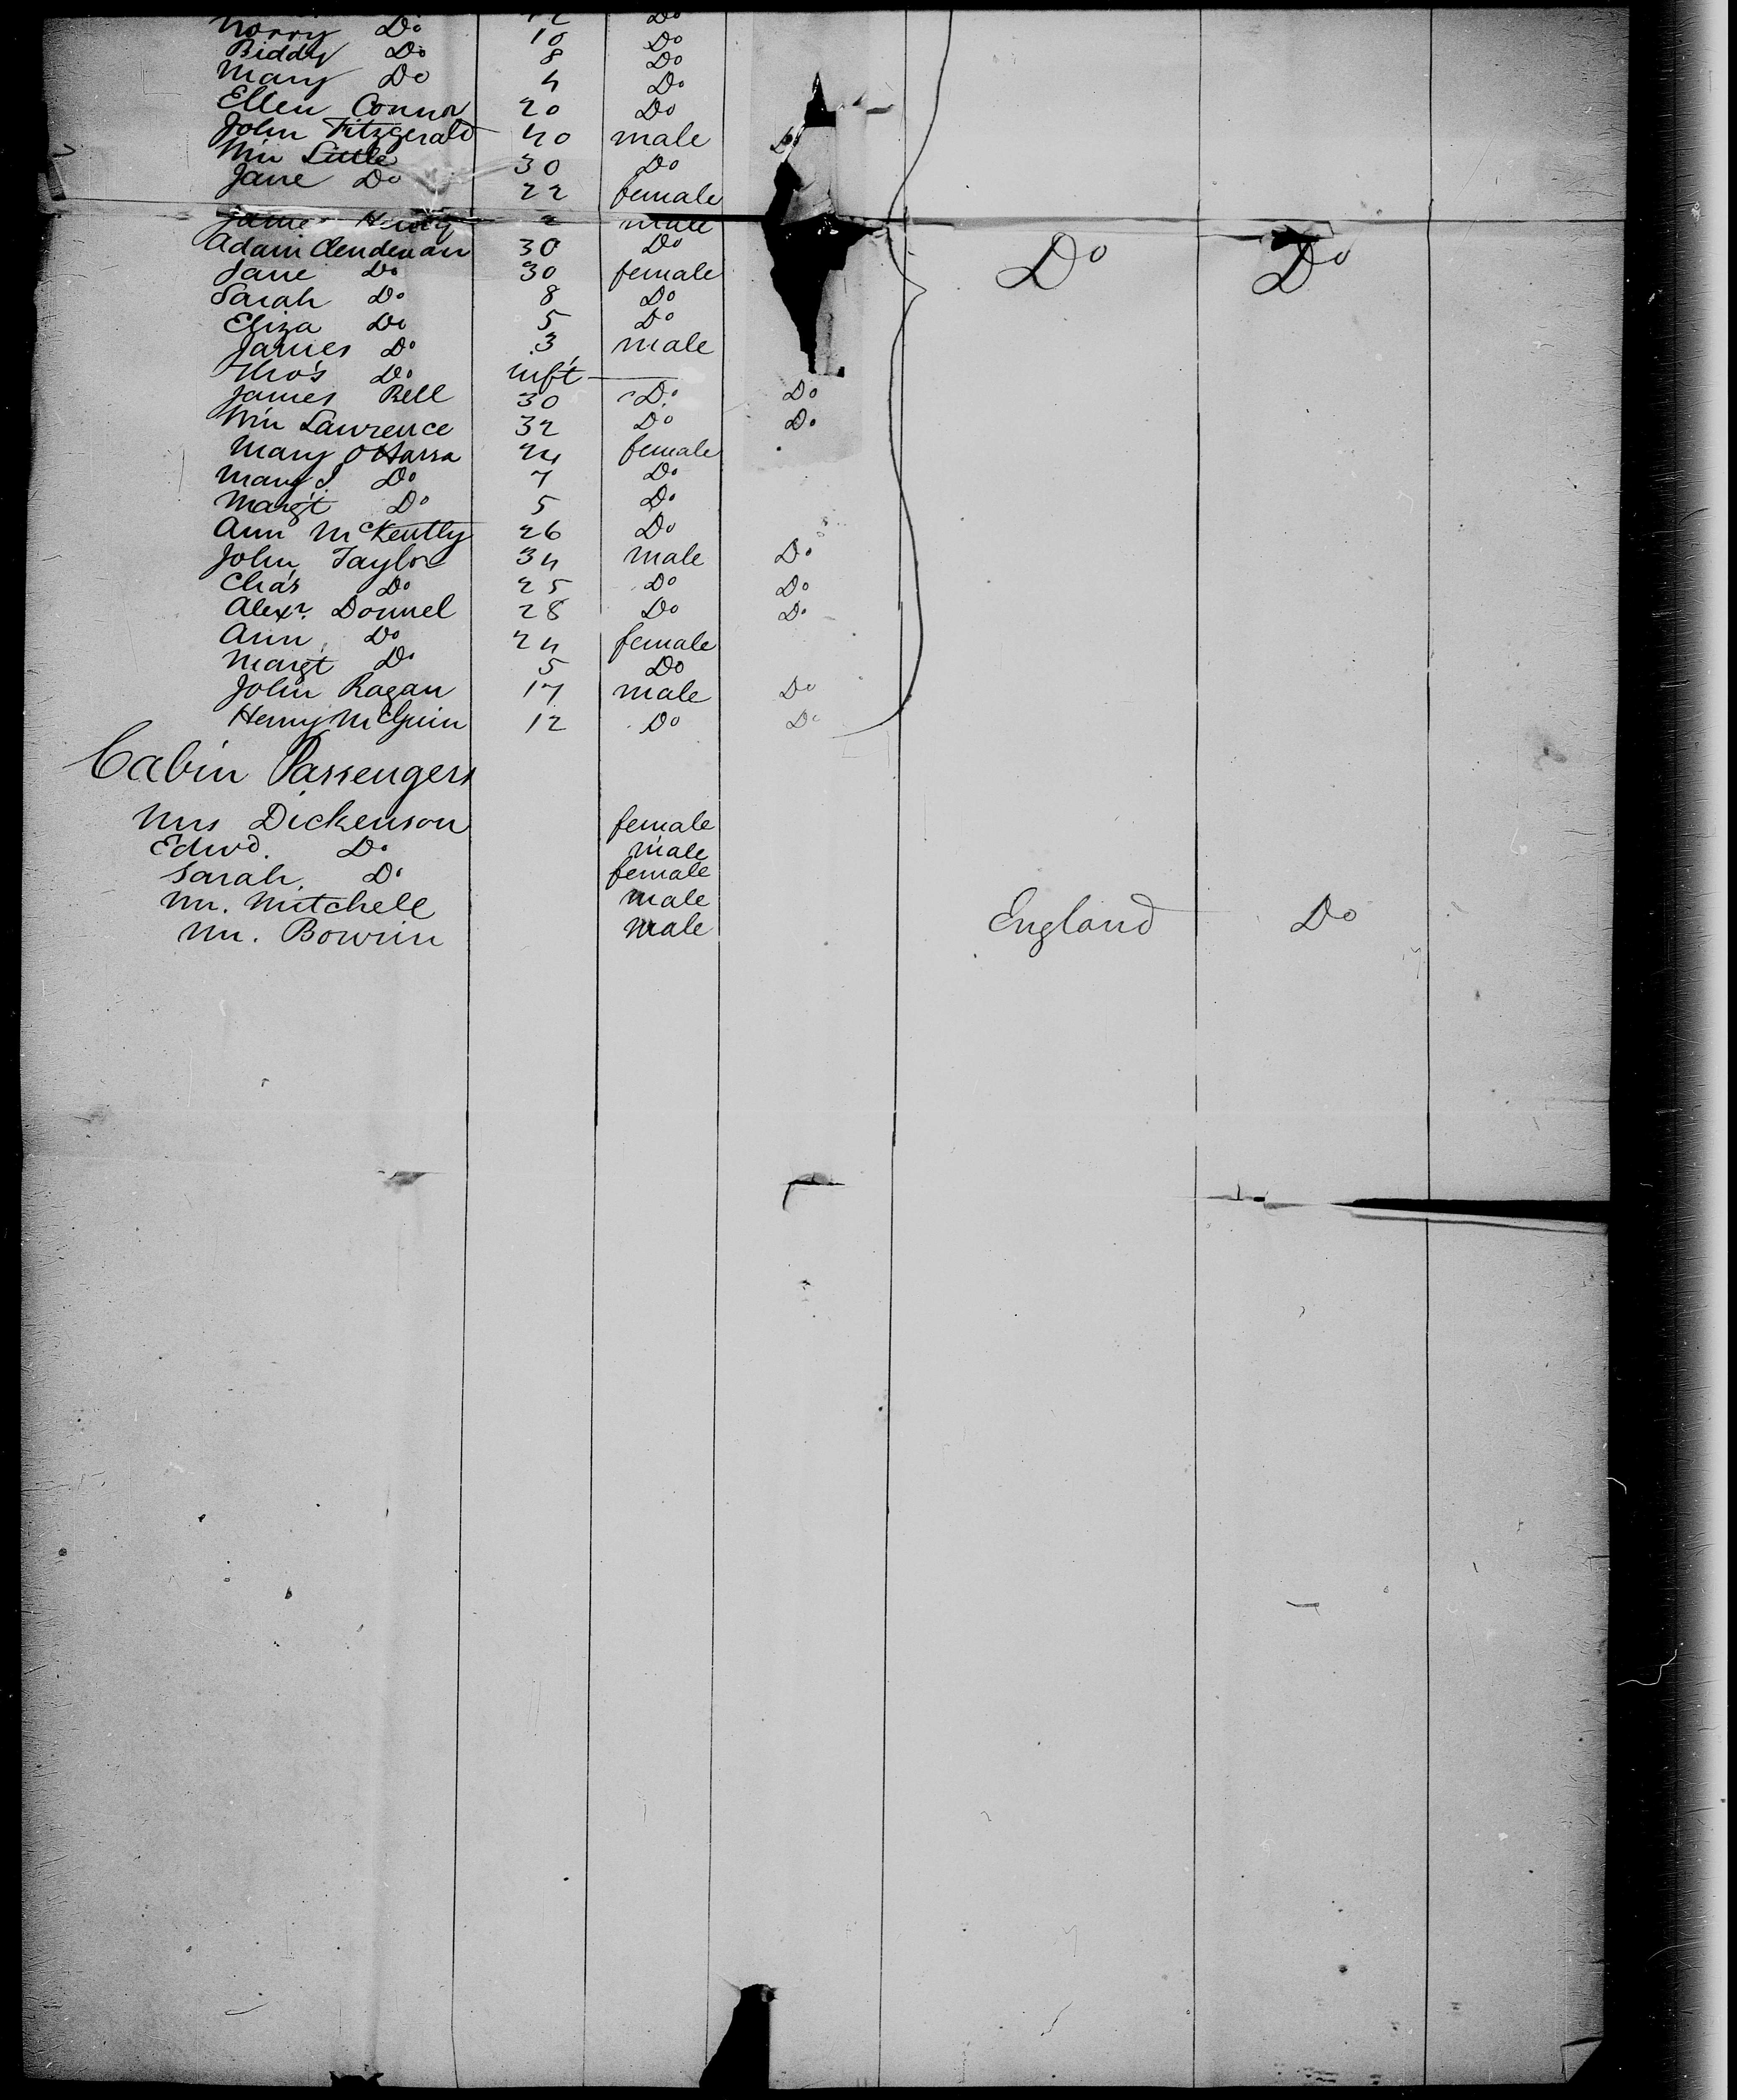 Norry Do 10 Do
Biddy Do 8 Do
Mary Do 4 Do
Ellen Connor 20 Do
John Fitzgerald 40 male Do
Wm Little 30 Do
Jane Do 22 female
James Henry 2 male
Adam Clendenan 30 Do Do Do
Jane Do 30 female
Sarah Do 8 Do
Eliza Do 5 Do
James Do 3 male
Tho's Do inft
James Bell 30 Do Do
Wm Lawrence 32 Do Do
Mary O Harra 24 female
Mary J. Do 7 Do
Margt Do 5 Do
Ann McKently 26 Do
John Taylor 34 male Do
Cha's Do 25 Do Do
Alexr. Donnel 28 Do Do
Ann Do 24 female
Margt Do 5 Do
John Ragan 17 male Do
Henry McGuin 12 Do Do
Cabin Passengers
Mrs Dickenson female
Edwd. Do male
Sarah. Do female
Mr. Mitchell male
Mr. Bowrin male England Do